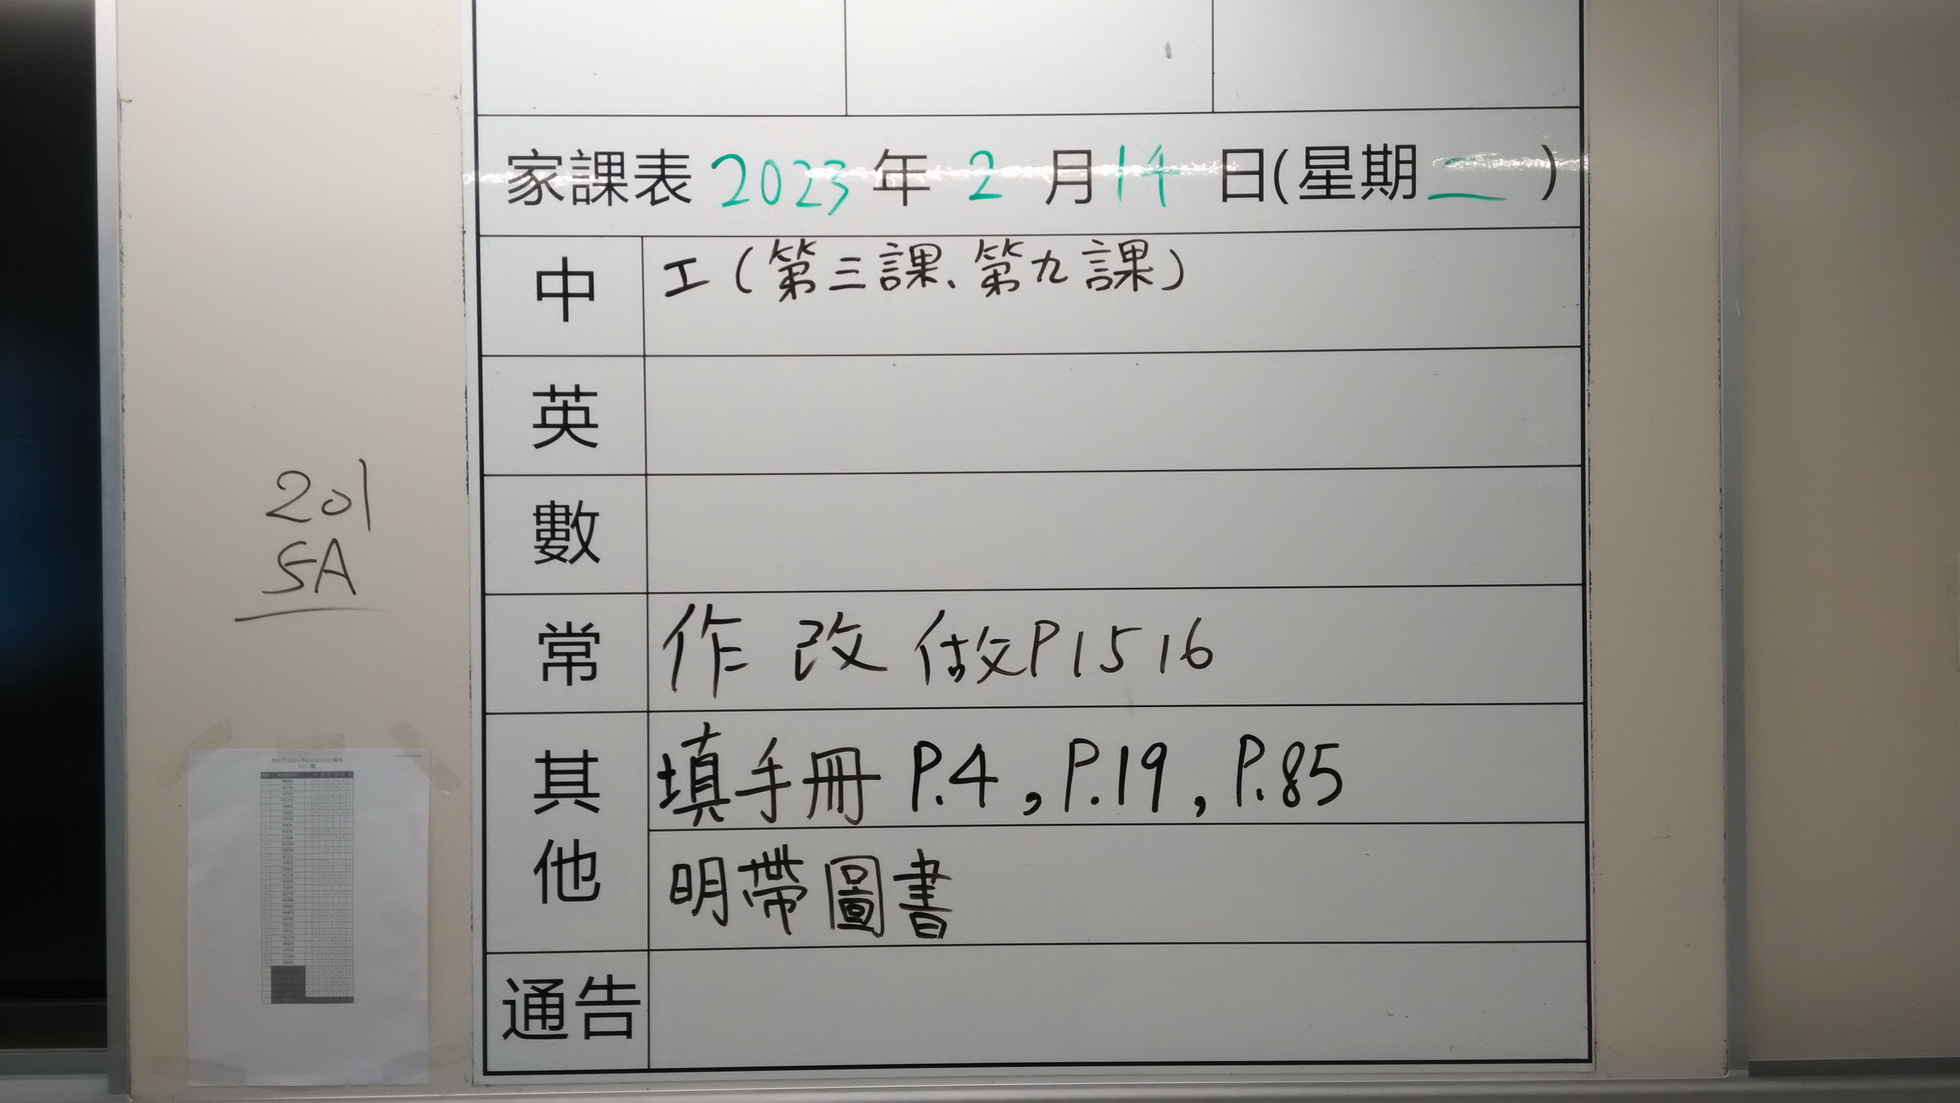 家課表 2023 年 2 月 14 日(星期二)
中 工(第三課、第九課)
英
數
常 作 改 做P15 16
其他 填手冊 P.4, P.19, P.85
明帶圖書
通告
201
5A